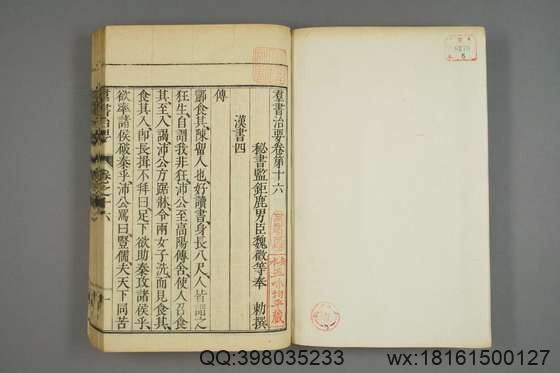 羣書治要卷第十六
秘書監鉅鹿男臣魏徵等奉 勅撰
漢書四
傳
酈食其陳留人也好讀書身長八尺人皆謂之
狂生自謂我非狂沛公至高陽傳舍使人召食
其至入謁沛公方踞牀令兩女子洗而見食其
食其入卽長揖不拜曰足下欲助秦攻諸侯乎
欲率諸侯破秦乎沛公罵曰豎儒夫天下同苦
羣書治要 卷之十六 一
QQ:398035233
wx:18161500127